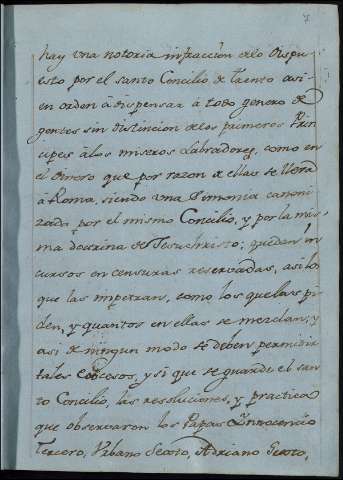 hay vna notoria infraccion de lo dispu
esto por el santo Concilio de trento asi
en orden à dispensar à todo genero de
gentes sin distincion de los primeros Prin
cipes à los miseros Labradores, como en
el dinero que por razon de ellas se lleva
à Roma, siendo vna Simonia canoni
zada por el mismo Concilio, y por la mis
ma doctrina de Jesuchristo; quedan in
cursos en censuras reservadas, asi los
que las impetran, como los que las pi
den, y quantos en ellas se mezclan; y
asi de ningun modo se deben permitir
tales excesos, y si que se guarde el san
to Concilio, las resoluciones, y practica
que observaron los Papas Innocencio
Tercero, Vrbano Sexto, Adriano Sexto,